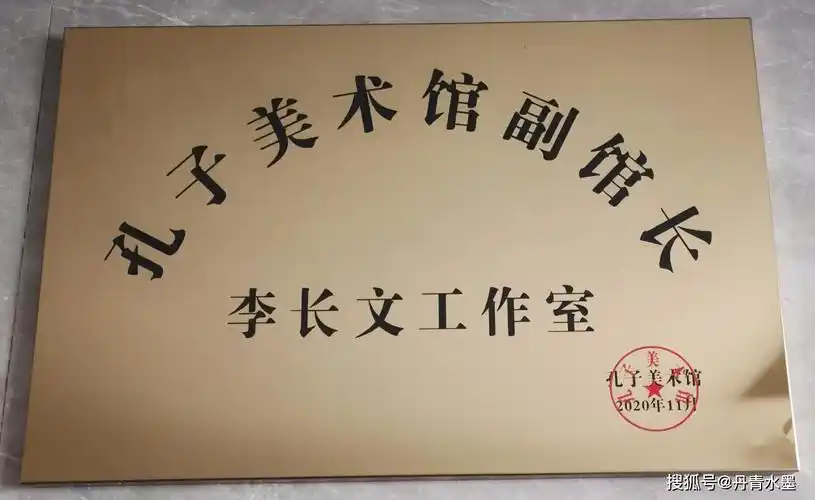 孔子美术馆副馆长
李长文工作室
孔子美术馆
2020年11月
搜狐号@丹青水墨